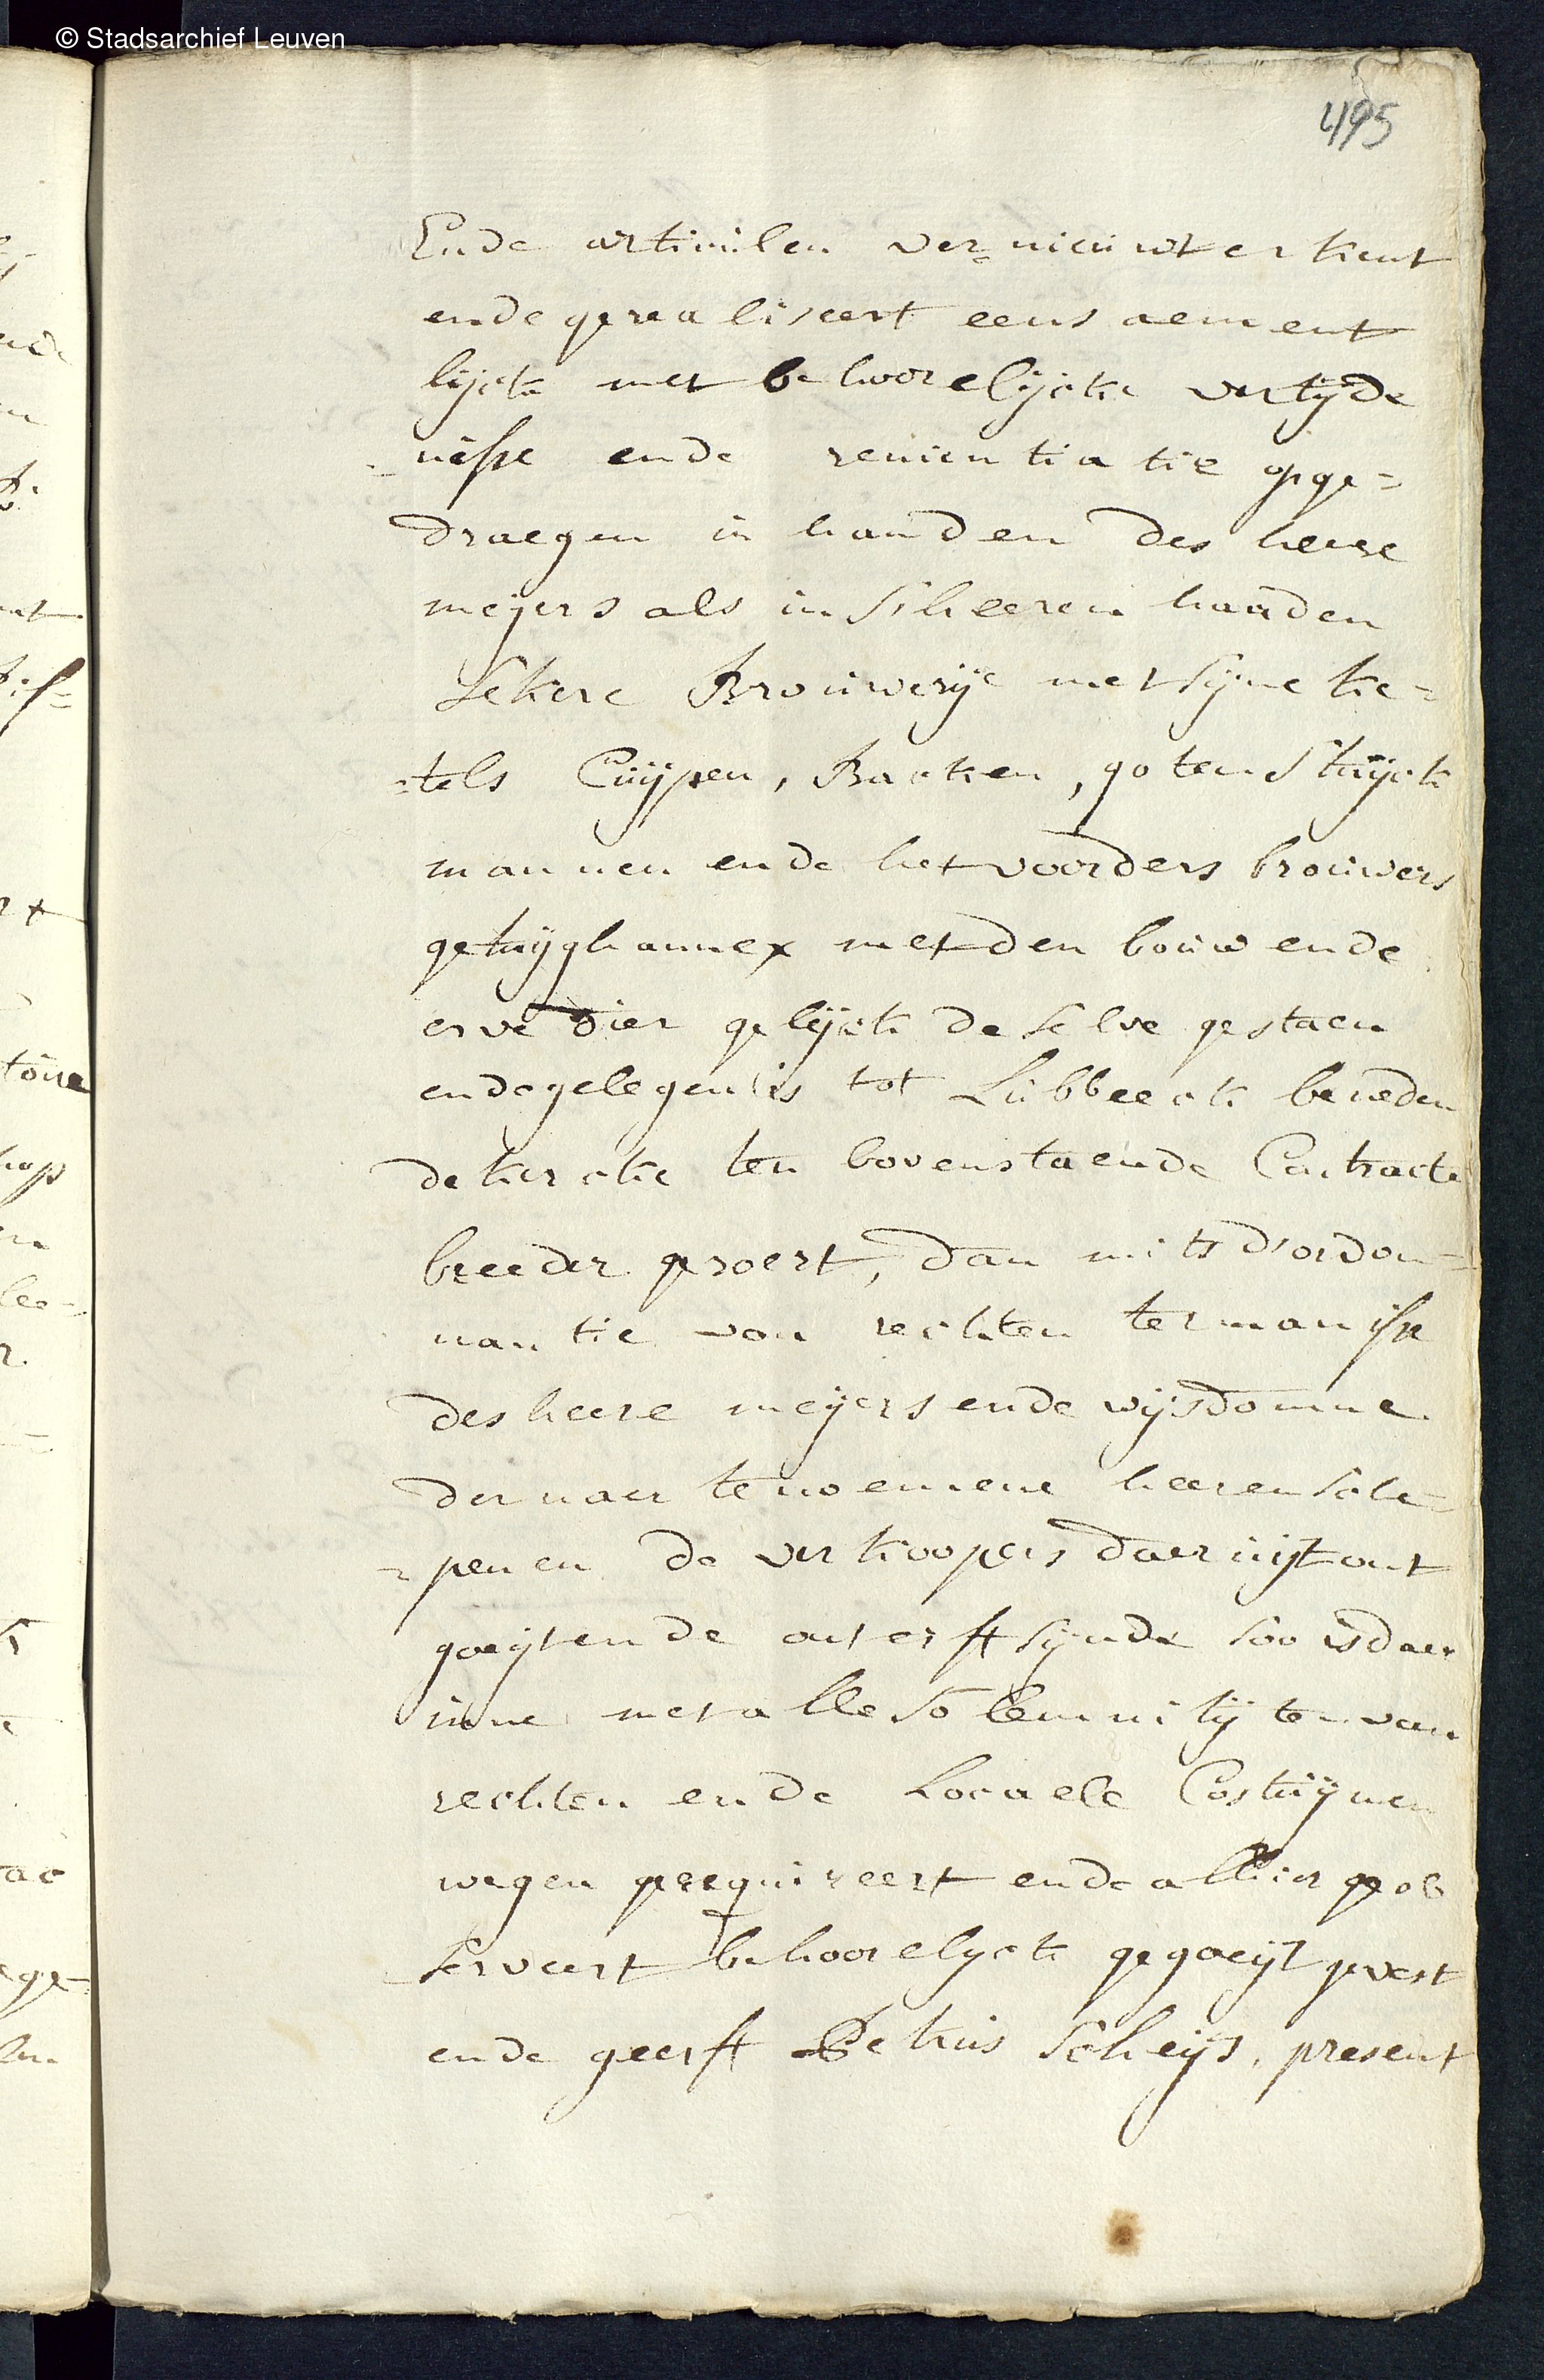 © Stadsarchief Leuven
495
Ende articulen vernieuwt erkent
ende gerealiseert eensaement
lijck met behoorelijcke vertijde
-nisse ende renuntiatie opge=
draegen in handen des heere
meijers als in s'heeren handen
sekere Brouwerije met sijne ke=
=tels Cuijpen, Backen, goten stuijck
mannen ende het voorders brouwers
getuijgh annex met den bouw ende
erve dier gelijck de selve gestaen
ende gelegen is tot Lubbeeck beneden
de kercke ten bovenstaende Contracte
breeder geroert, dan mits d'ordon=
nantie van rechten ter manisse
des heere meijers ende wijsdomme
der naer te noemene heeren sche=
=penen de verkoopers daer uijt ont
goeijt ende onterft sijnde soo is daer
inne met alle solemnitijten van
rechten ende Locaele Costuijmen
wegen gerequireert ende alhier geob
serveert behoorelyck gegoeijt gevest
ende geerft Petrus Scheijs, present